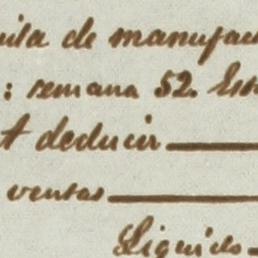 de manufac
: semana 52. Est
A deducir
ventas
Liquido